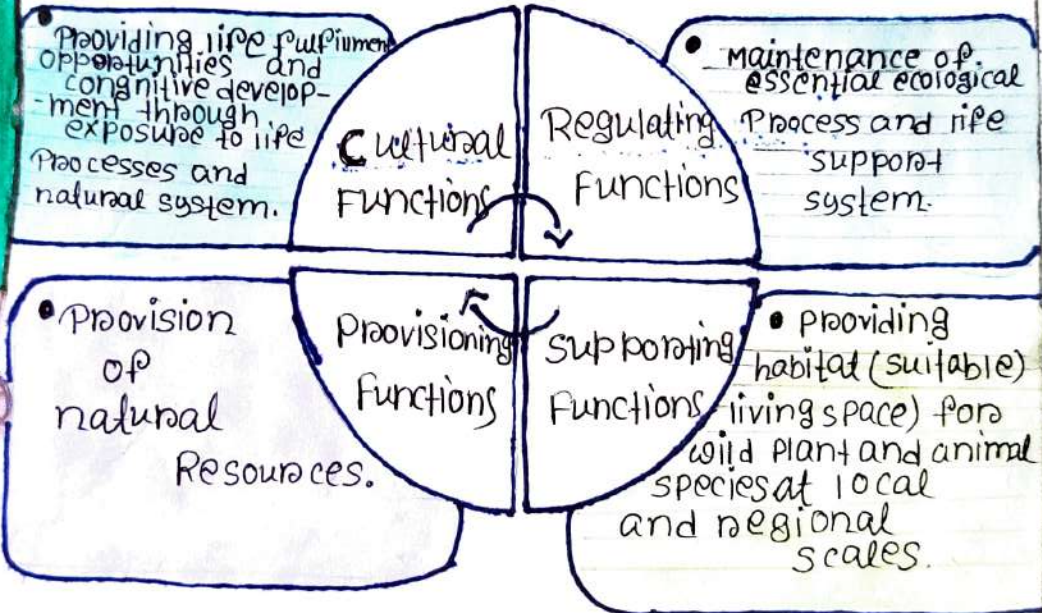 • Providing life fulfiument
opportunities and
congnitive develop-
-ment through
exposure to life
Processes and
natural system.
Cultural
Functions
Regulating
Functions
• Maintenance of
essential ecological
Process and life
support
system.
• Provision
of
natural
Resources.
Provisioning
Functions
Supporting
Functions
• Providing
habitat (suitable)
living space) for
wild Plant and animal
species at local
and regional
scales.